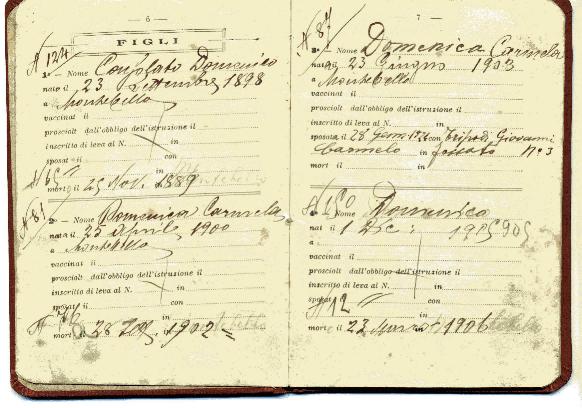 — 6 —
FIGLI
N 124
1° — Nome Consolato Domenico
nato il 23 Settembre 1898
a Montebello
vaccinat il
prosciolt dall'obbligo dell'istruzione il
inscritto di leva al N. in
sposat il con
in
morto il 25 Nov. 1889
N 81
2° — Nome Domenica Carmela
nata il 25 Aprile 1900
a Montebello
vaccinat il
prosciolt dall'obbligo dell'istruzione il
inscritto di leva al N. in
sposat il con
in
mort il 28 1902
7 —
N 87
3° — Nome Domenica Carmela
nata il 23 Giugno 1903
a Montebello
vaccinat il
prosciolt dall'obbligo dell'istruzione il
inscritto di leva al N. in
sposat il 28 Genn. con Tripodi Giovanni
Carmelo in N° 3
mort il
N 150
Nome Domenico
nat il 1 Dic: 1905 905
a
vaccinat il
prosciolt dall'obbligo dell'istruzione il
inscritto di leva al N. in
sposat il con
N 12
in
morto il 23 Marzo 1906